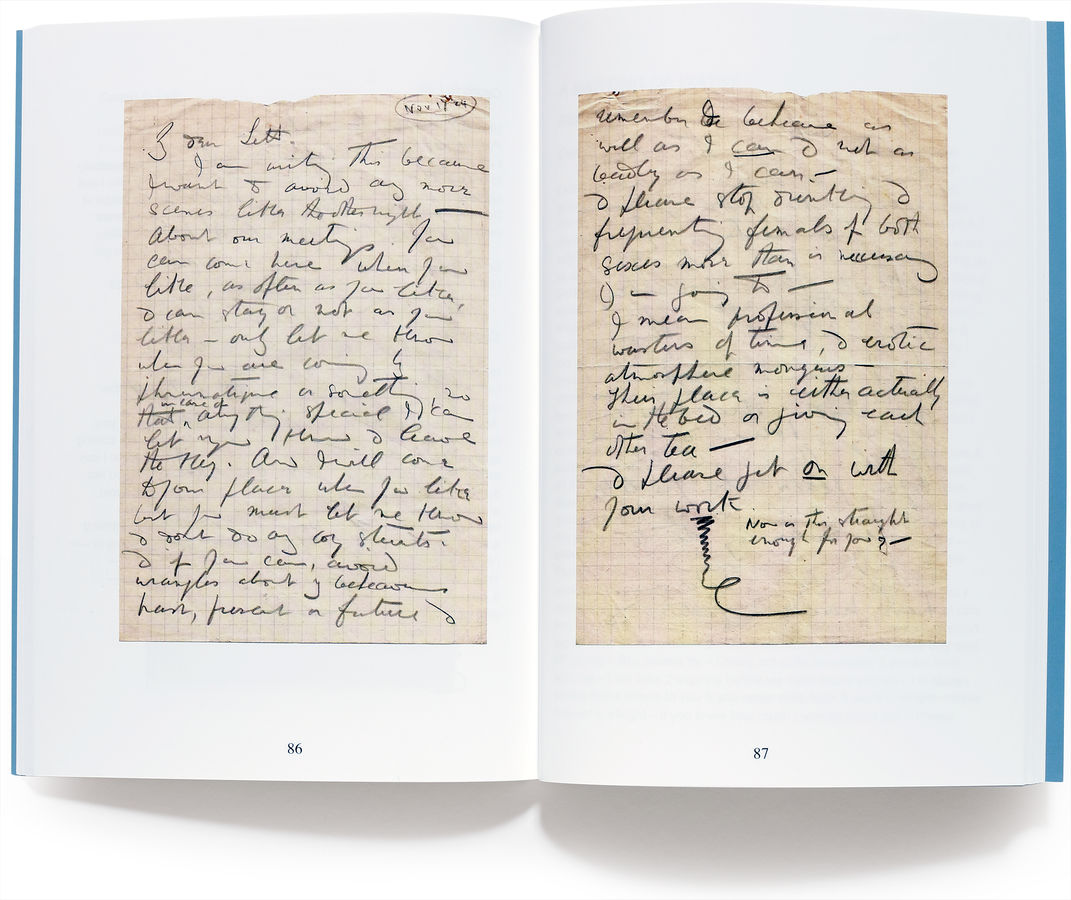 Nov
My dear Lett.
I am writing this because
I want to avoid any more
scenes like the other night —
About our meeting. You
can come here when you
like, as often as you like,
& can stay or not as you
like — only let me know
when you are coming by
pneumatique or something, so
in case of
that, anything special I can
let you know & leave
the key. And I will come
to your place when you like
but you must let me know
& dont do any coy stunts.
& if you can, avoid
wrangles about my behaviour
past, present or future &
86
remember to behave as
well as I can & not as
badly as I can —
& please stop drinking &
frequenting females of both
sexes more than is necessary
I am going to —
I mean professional
wasters of time, & erotic
atmosphere mongers —
Their place is either actually
in the bed or giving each
other tea —
& please get on with
your work
Now is this straight
enough for you? —
87